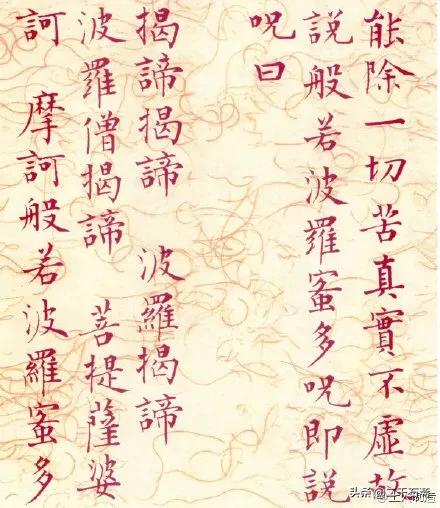 能除一切苦真實不虛故
說般若波羅蜜多呪即說
呪曰
揭諦揭諦 波羅揭諦
波羅僧揭諦 菩提薩婆
訶 摩訶般若波羅蜜多
头条